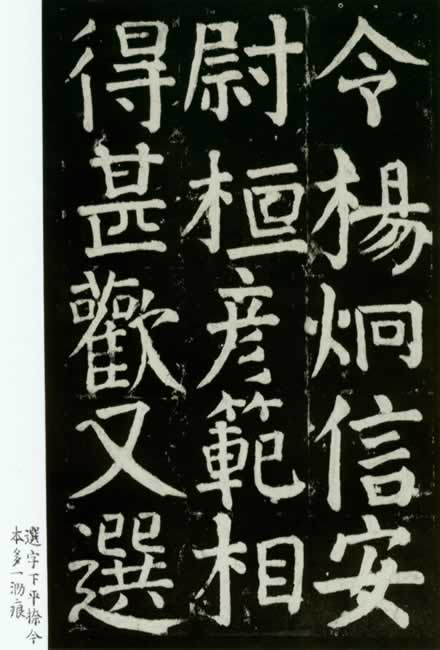 令楊炯信安
尉桓彦範相
得甚歡又選
選字下平捺今
本多一泐痕